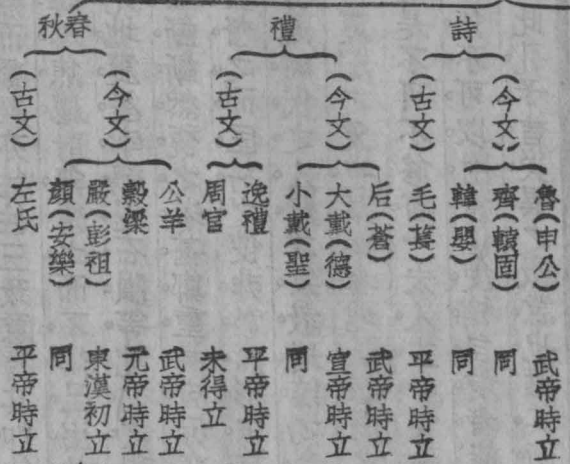 詩
(今文)
魯(申公) 武帝時立
齊(轅固) 同
韓(嬰) 同
(古文)
毛(萇) 平帝時立
禮
(今文)
后(蒼) 武帝時立
大戴(德) 宣帝時立
小戴(聖) 同
(古文)
逸禮 平帝時立
周官 未得立
春秋
(今文)
公羊 武帝時立
穀梁 元帝時立
嚴(彭祖) 東漢初立
顏(安樂) 同
(古文)
左氏 平帝時立